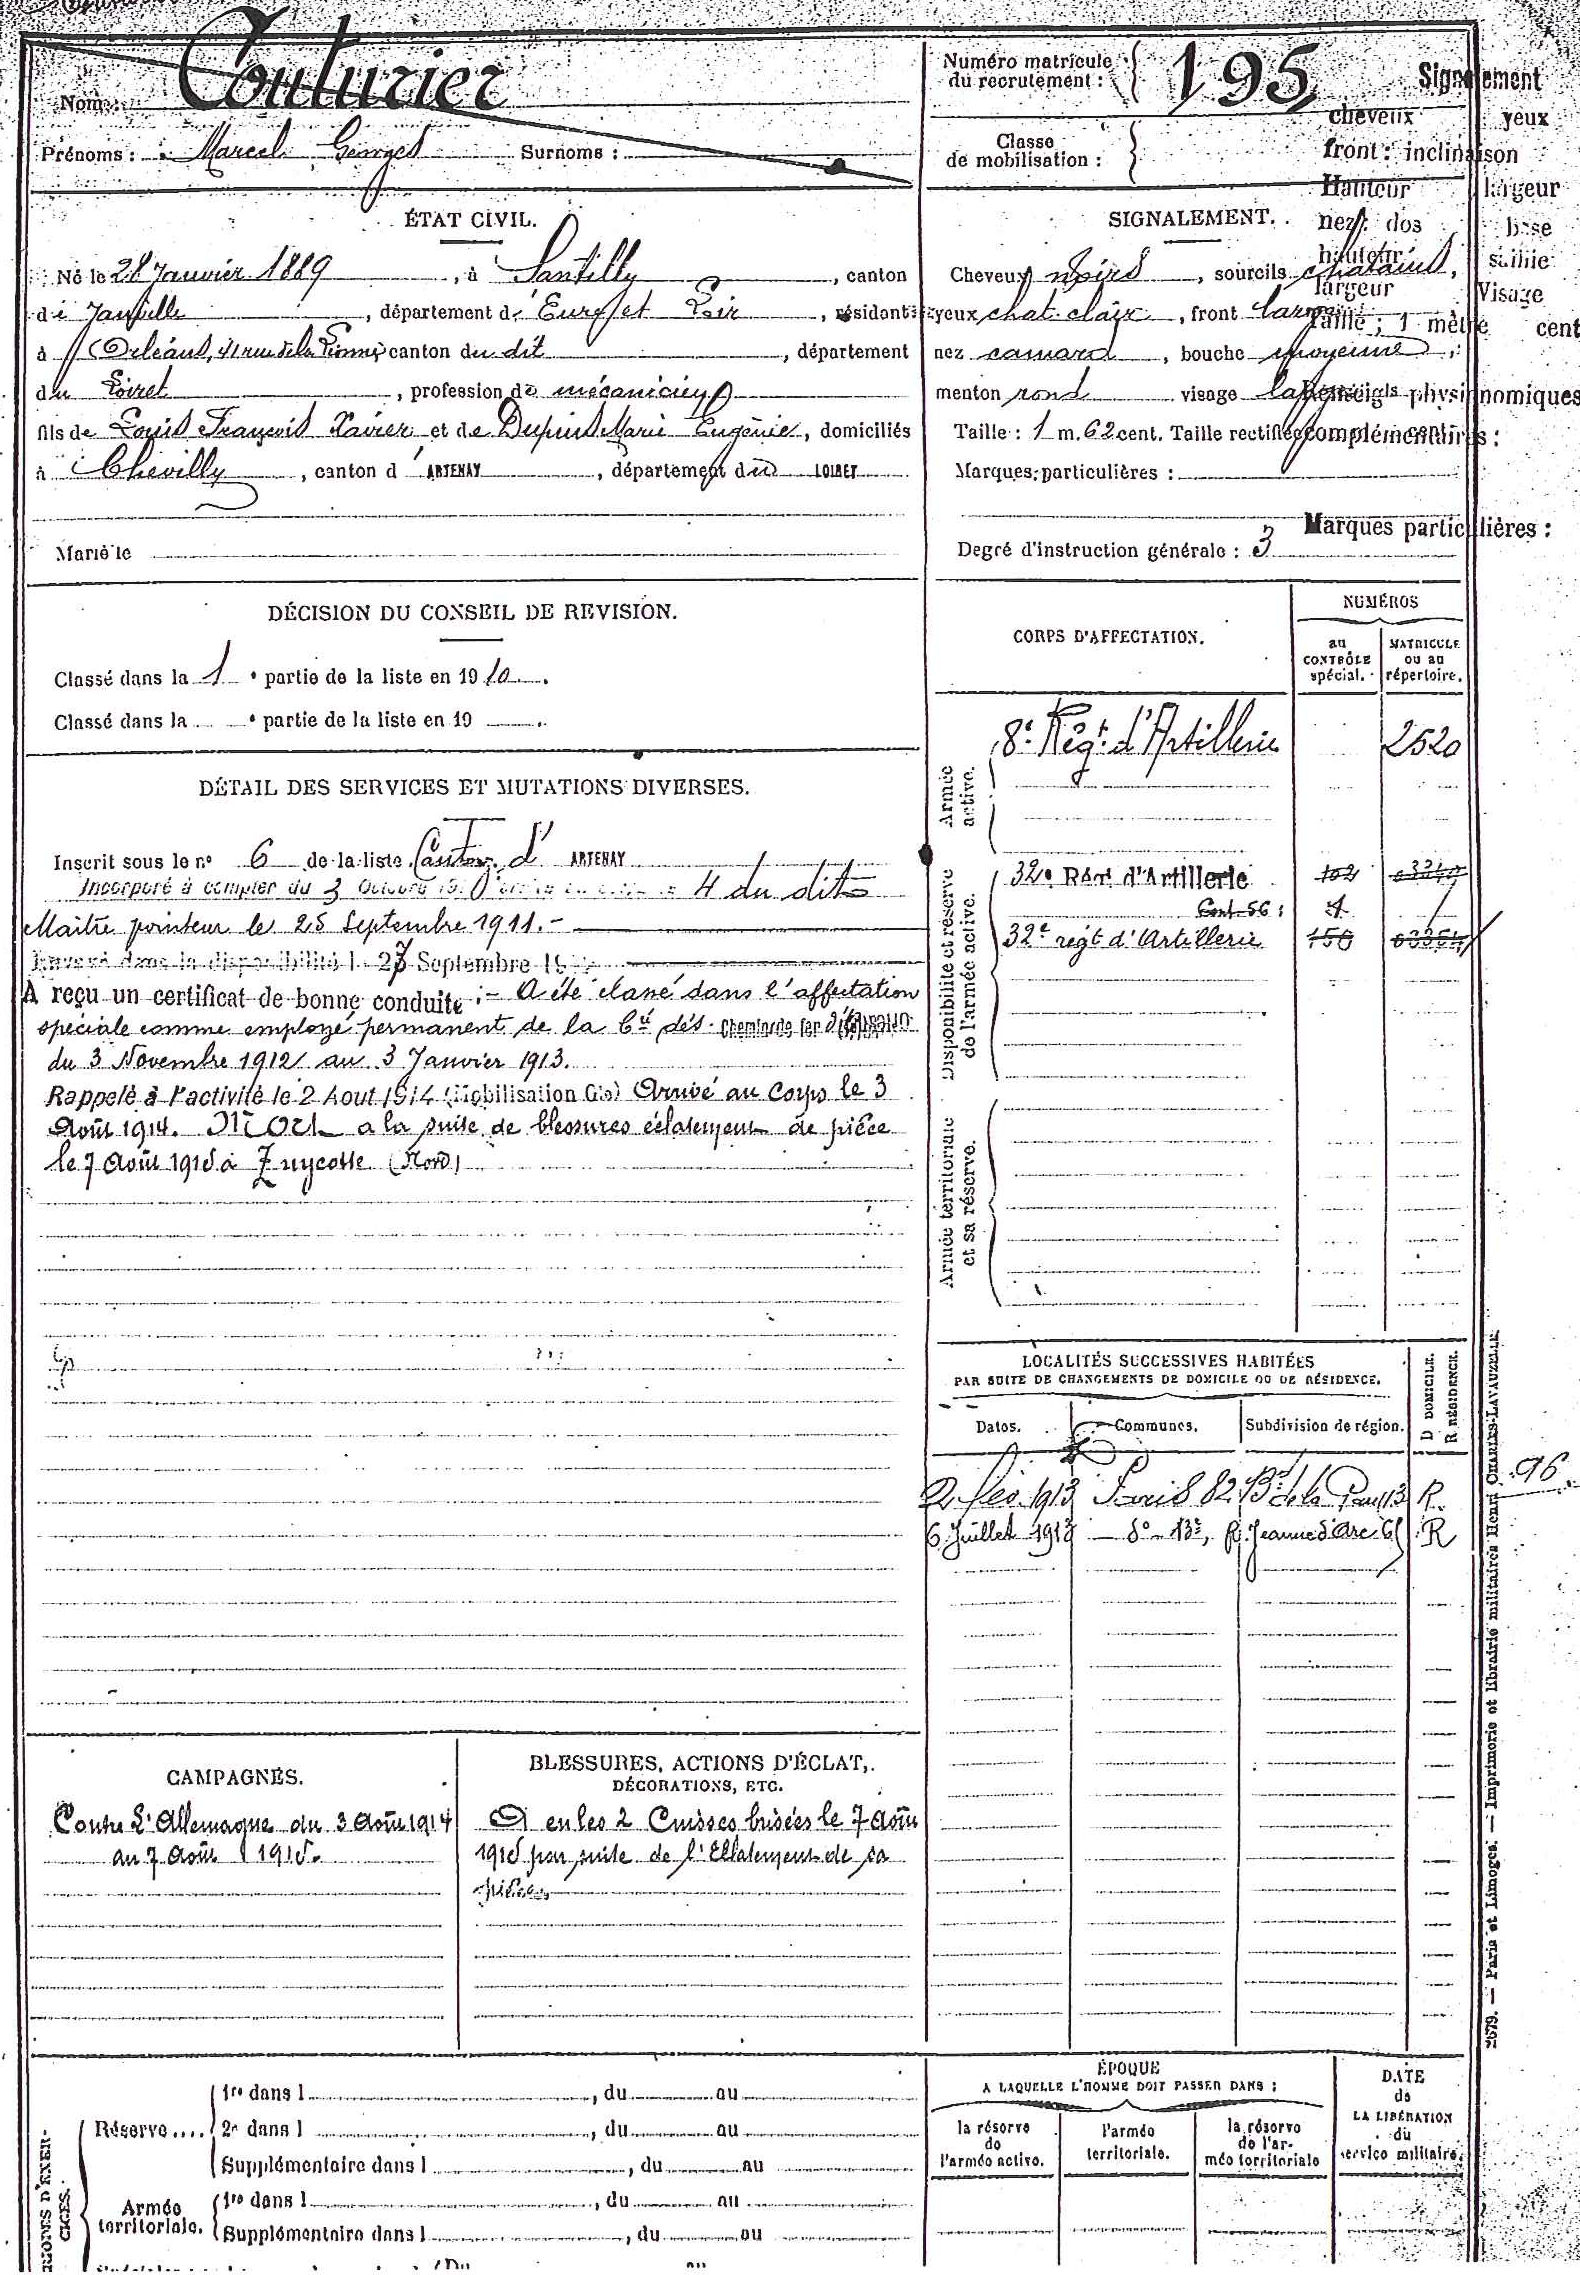 Nom : Couturier
Prénoms : Marcel Georges Surnoms :
Numéro matricule
du recrutement : 195
Classe
de mobilisation :
Signalement
cheveux yeux
front : inclinaison
Hauteur largeur
nez : dos base
hauteur saillie
largeur Visage
Taille : 1 mètre cent
Renseig<sup>ts</sup> physionomiques
complémentaires :
Marques particulières :
ÉTAT CIVIL.
Né le 28 Janvier 1889, à Santilly, canton
de Janville, département d'Eure et Loir, résidant
à Orléans, 41 rue de la canton du dit, département
du Loiret, profession de mécanicien
fils de Louis François Xavier et de Dupuis Marie Eugénie, domiciliés
à Chevilly, canton d'ARTENAY, département du LOIRET
Marié le
SIGNALEMENT.
Cheveux noirs, sourcils chatains,
yeux chat. clair, front large
nez camard, bouche moyenne,
menton rond visage large
Taille : 1 m. 62 cent. Taille rectifiée cent.
Marques particulières :
Degré d'instruction générale : 3
DÉCISION DU CONSEIL DE REVISION.
Classé dans la 1e partie de la liste en 1910.
Classé dans la e partie de la liste en 19 .
DÉTAIL DES SERVICES ET MUTATIONS DIVERSES.
Inscrit sous le no 6 de la liste Canton d'ARTENAY
Incorporé à compter du 3 Octobre 1910 4 du dit
Maitre pointeur le 25 Septembre 1911.-
Envoyé dans la disponibilité le Septembre
A reçu un certificat de bonne conduite :- A été classé dans l'affectation
spéciale comme employé permanent de la Cie des Chemins de fer d'
du 3 Novembre 1912 au 3 Janvier 1913.
Rappelé à l'activité le 2 Aout 1914 (Mobilisation Gle) Arrivé au corps le 3
Août 1914. Mort a la suite de blessures éclatement de pièce
le 7 Août 1915 à Zuycotte (Nord)
CORPS D'AFFECTATION.
NUMÉROS
au
CONTRÔLE
spécial.
MATRICULE
ou au
répertoire.
Armée
active.
8e Régt d'Artillerie 2520
Disponibilité et réserve
de l'armée active.
32e Régt d'Artillerie 102
Cent. 56 :
32e régt d'Artillerie 150
Armée territoriale
et sa réserve.
LOCALITÉS SUCCESSIVES HABITÉES
PAR SUITE DE CHANGEMENTS DE DOMICILE OU DE RÉSIDENCE.
Dates. Communes. Subdivision de région.
D DOMICILE.
R RÉSIDENCE.
2 fév. 1913 Paris 82 Bd de la Gare 13 R.
6 Juillet 1913 — do — 13e, R. Jeanne d'Arc 65 R
96
CAMPAGNES.
Contre L'Allemagne du 3 Août 1914
au 7 Août 1915.
BLESSURES, ACTIONS D'ÉCLAT,
DÉCORATIONS, ETC.
A eu les 2 Cuisses brisées le 7 Août
1915 par suite de l'Eclatement de sa
pièce
Réserve.... 1re dans l , du au
2e dans l , du au
Supplémentaire dans l , du au
Armée
territoriale. 1re dans l , du au
Supplémentaire dans l , du au
ÉPOQUE
A LAQUELLE L'HOMME DOIT PASSER DANS :
la réserve
de
l'armée active.
l'armée
territoriale.
la réserve
de l'ar-
mée territoriale
DATE
de
LA LIBÉRATION
du
service militaire.
2679. — Paris et Limoges. — Imprimerie et librairie militaires Henri CHARLES-LAVAUZELLE